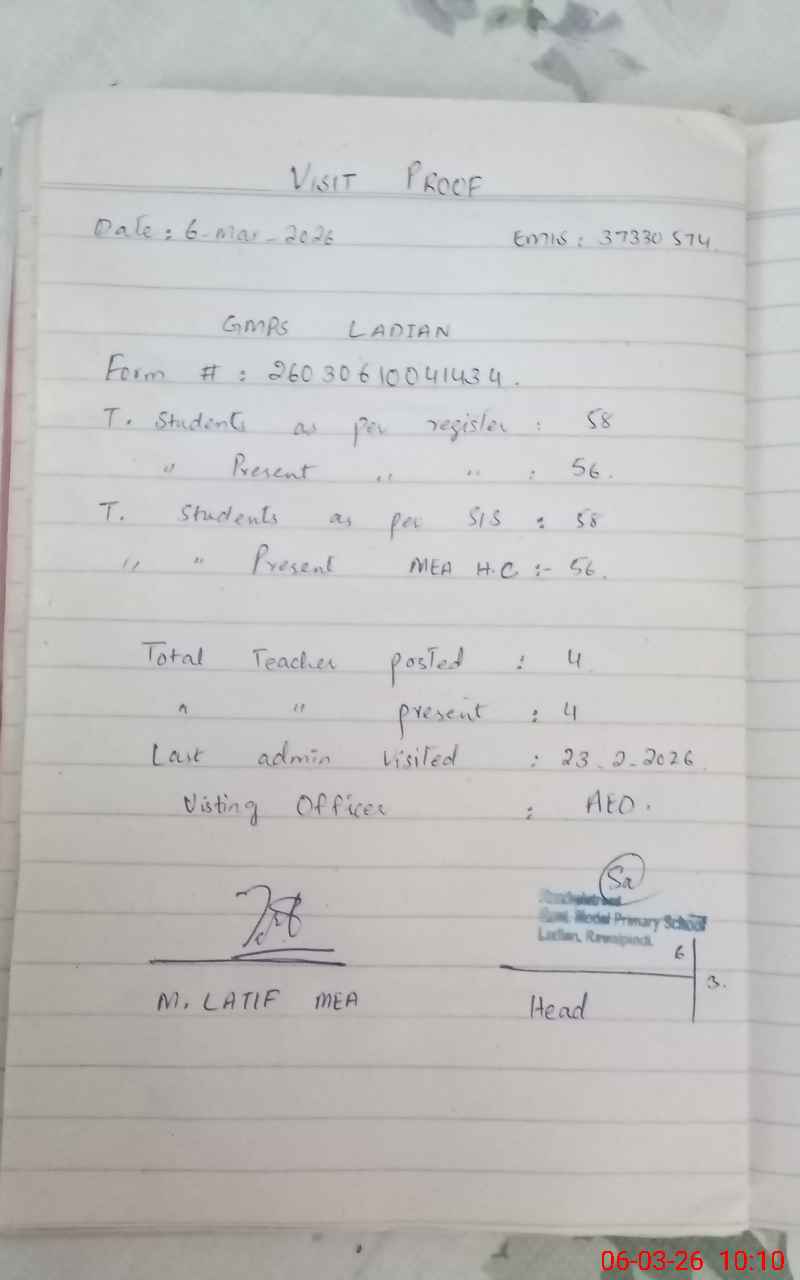 VISIT PROOF
Date : 6-Mar-2026 EMIS : 37330574.
GMPS LADIAN
Form # : 26030610041434.
T. Students as per register : 58
" Present " " : 56.
T. Students as per SIS : 58
" " Present MEA H.C :- 56.
Total Teacher posted : 4
" " present : 4
Last admin visited : 23-2-2026.
Visting Officer : AEO.
Sa
Govt. Model Primary School
Ladian, Rawalpindi.
6
3.
M. LATIF MEA Head
06-03-26 10:10